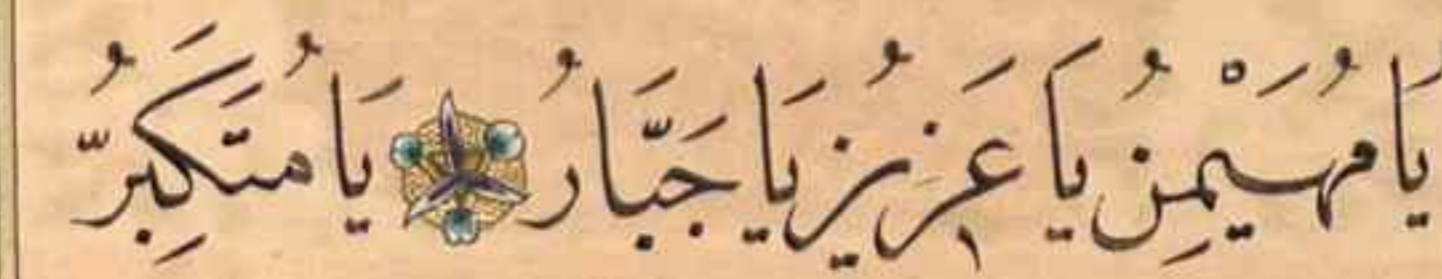 يَا مُهَيْمِنُ يَا عَزِيزُ يَا جَبَّارُ يَا مُتَكَبِّرُ